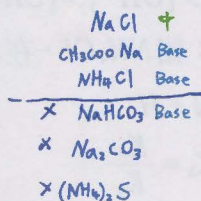 NaCl 中
CH₃COONa Base
NH₄Cl Base
× NaHCO₃ Base
× Na₂CO₃
× (NH₄)₂S